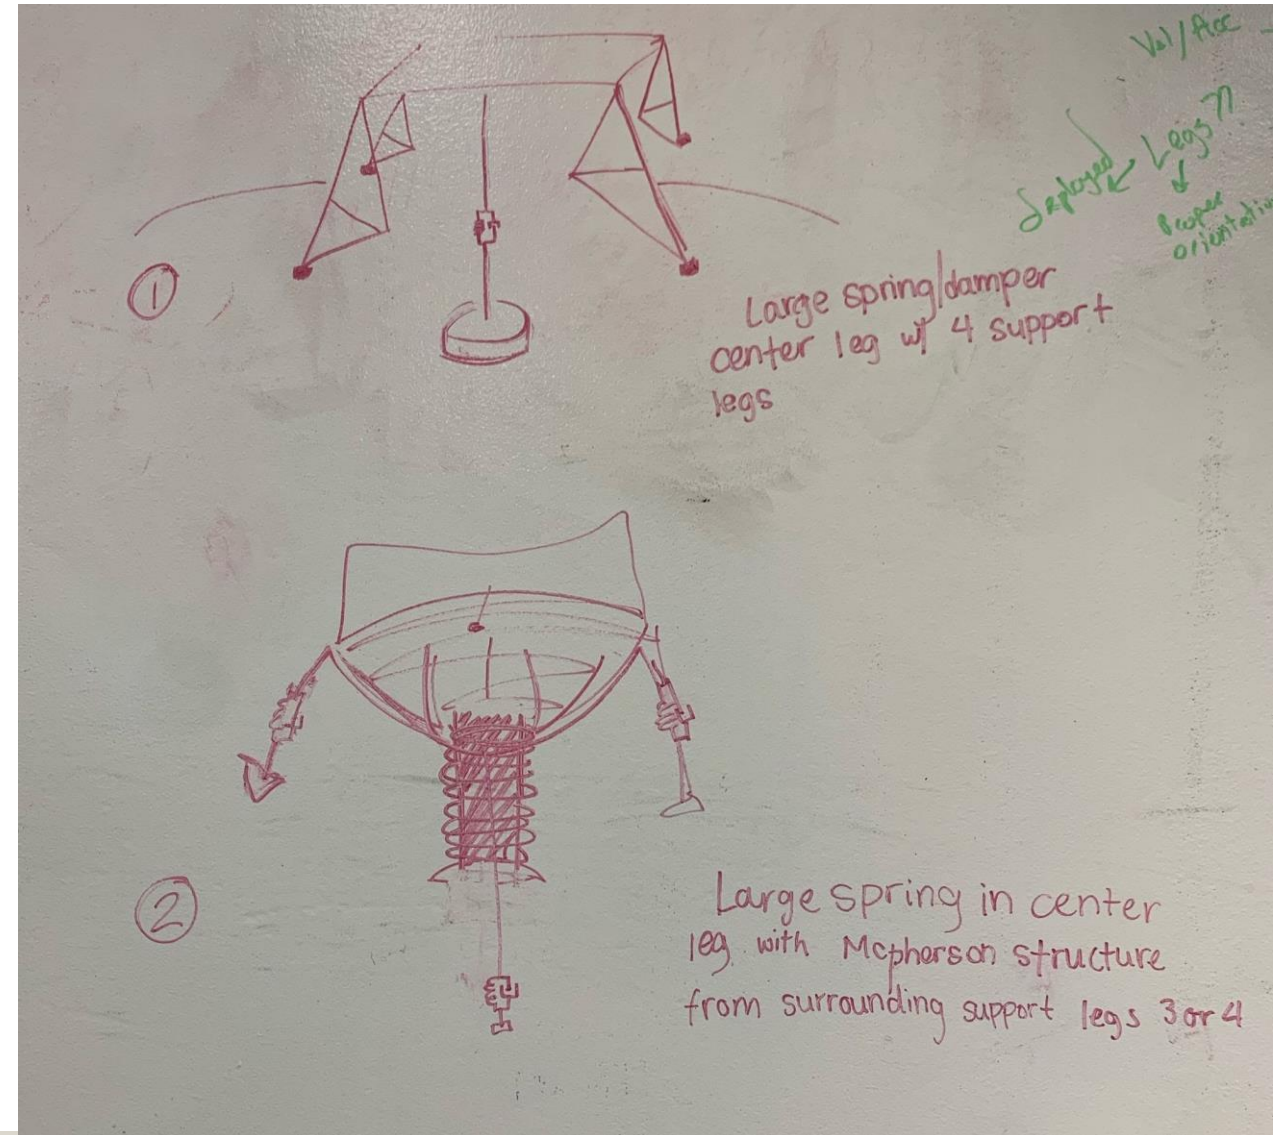 Vel/Acc
Legs??
deployed
Proper
orientation
1
Large spring/damper
center leg w/ 4 support
legs
2
Large spring in center
leg with Mcpherson structure
from surrounding support legs 3 or 4